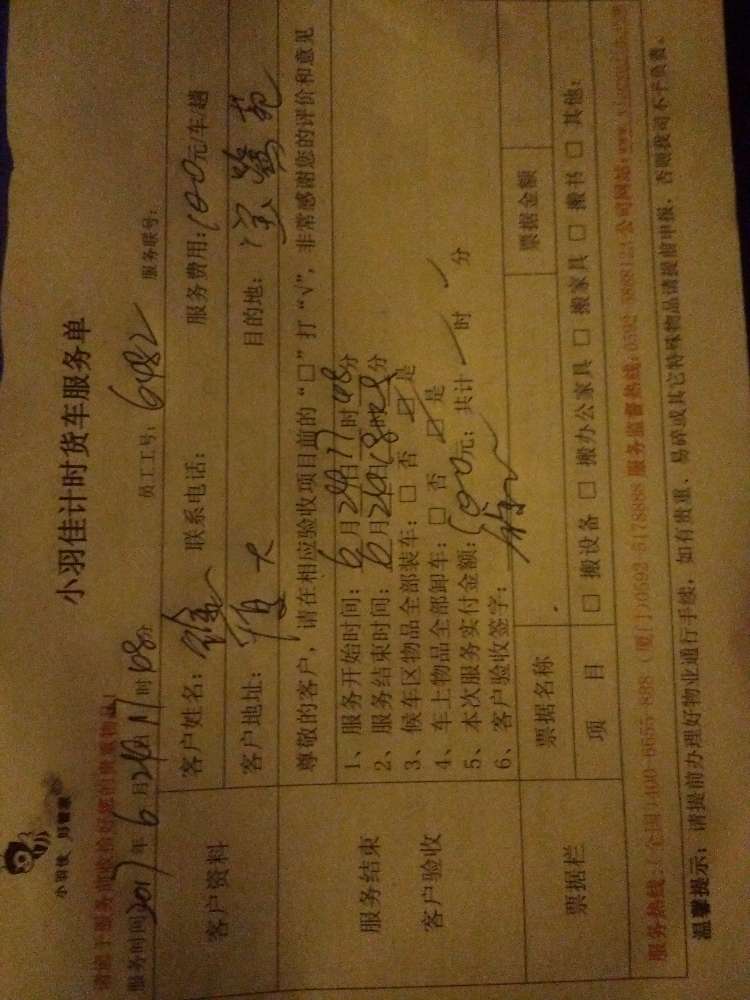 小羽佳 好管家
小羽佳计时货车服务单
请您于服务前收拾好您的贵重物品！
服务时间2017年6月24日17时08分 员工工号：6482 服务联号：
客户资料
客户姓名： 联系电话： 服务费用：100元/车/趟
客户地址： 目的地：
服务结束
客户验收
尊敬的客户，请在相应验收项目前的“□”打“√”，非常感谢您的评价和意见
1、服务开始时间：6月24日17时08分
2、服务结束时间：6月24日18时 分
3、候车区物品全部装车：□ 否 ☑ 是
4、车上物品全部卸车：□ 否 ☑ 是
5、本次服务实付金额：100元；共计 时 分
6、客户验收签字：
票据栏
票据名称 票据金额
项 目 □ 搬设备 □ 搬办公家具 □ 搬家具 □ 搬书 □ 其他：
服务热线：(全国)400-6655-888 (厦门)0592-5178888 服务监督热线：0592- 公司网站：
温馨提示：请提前办理好物业通行手续，如有贵重、易碎或其它特殊物品请提前申报，否则我司不予负责。